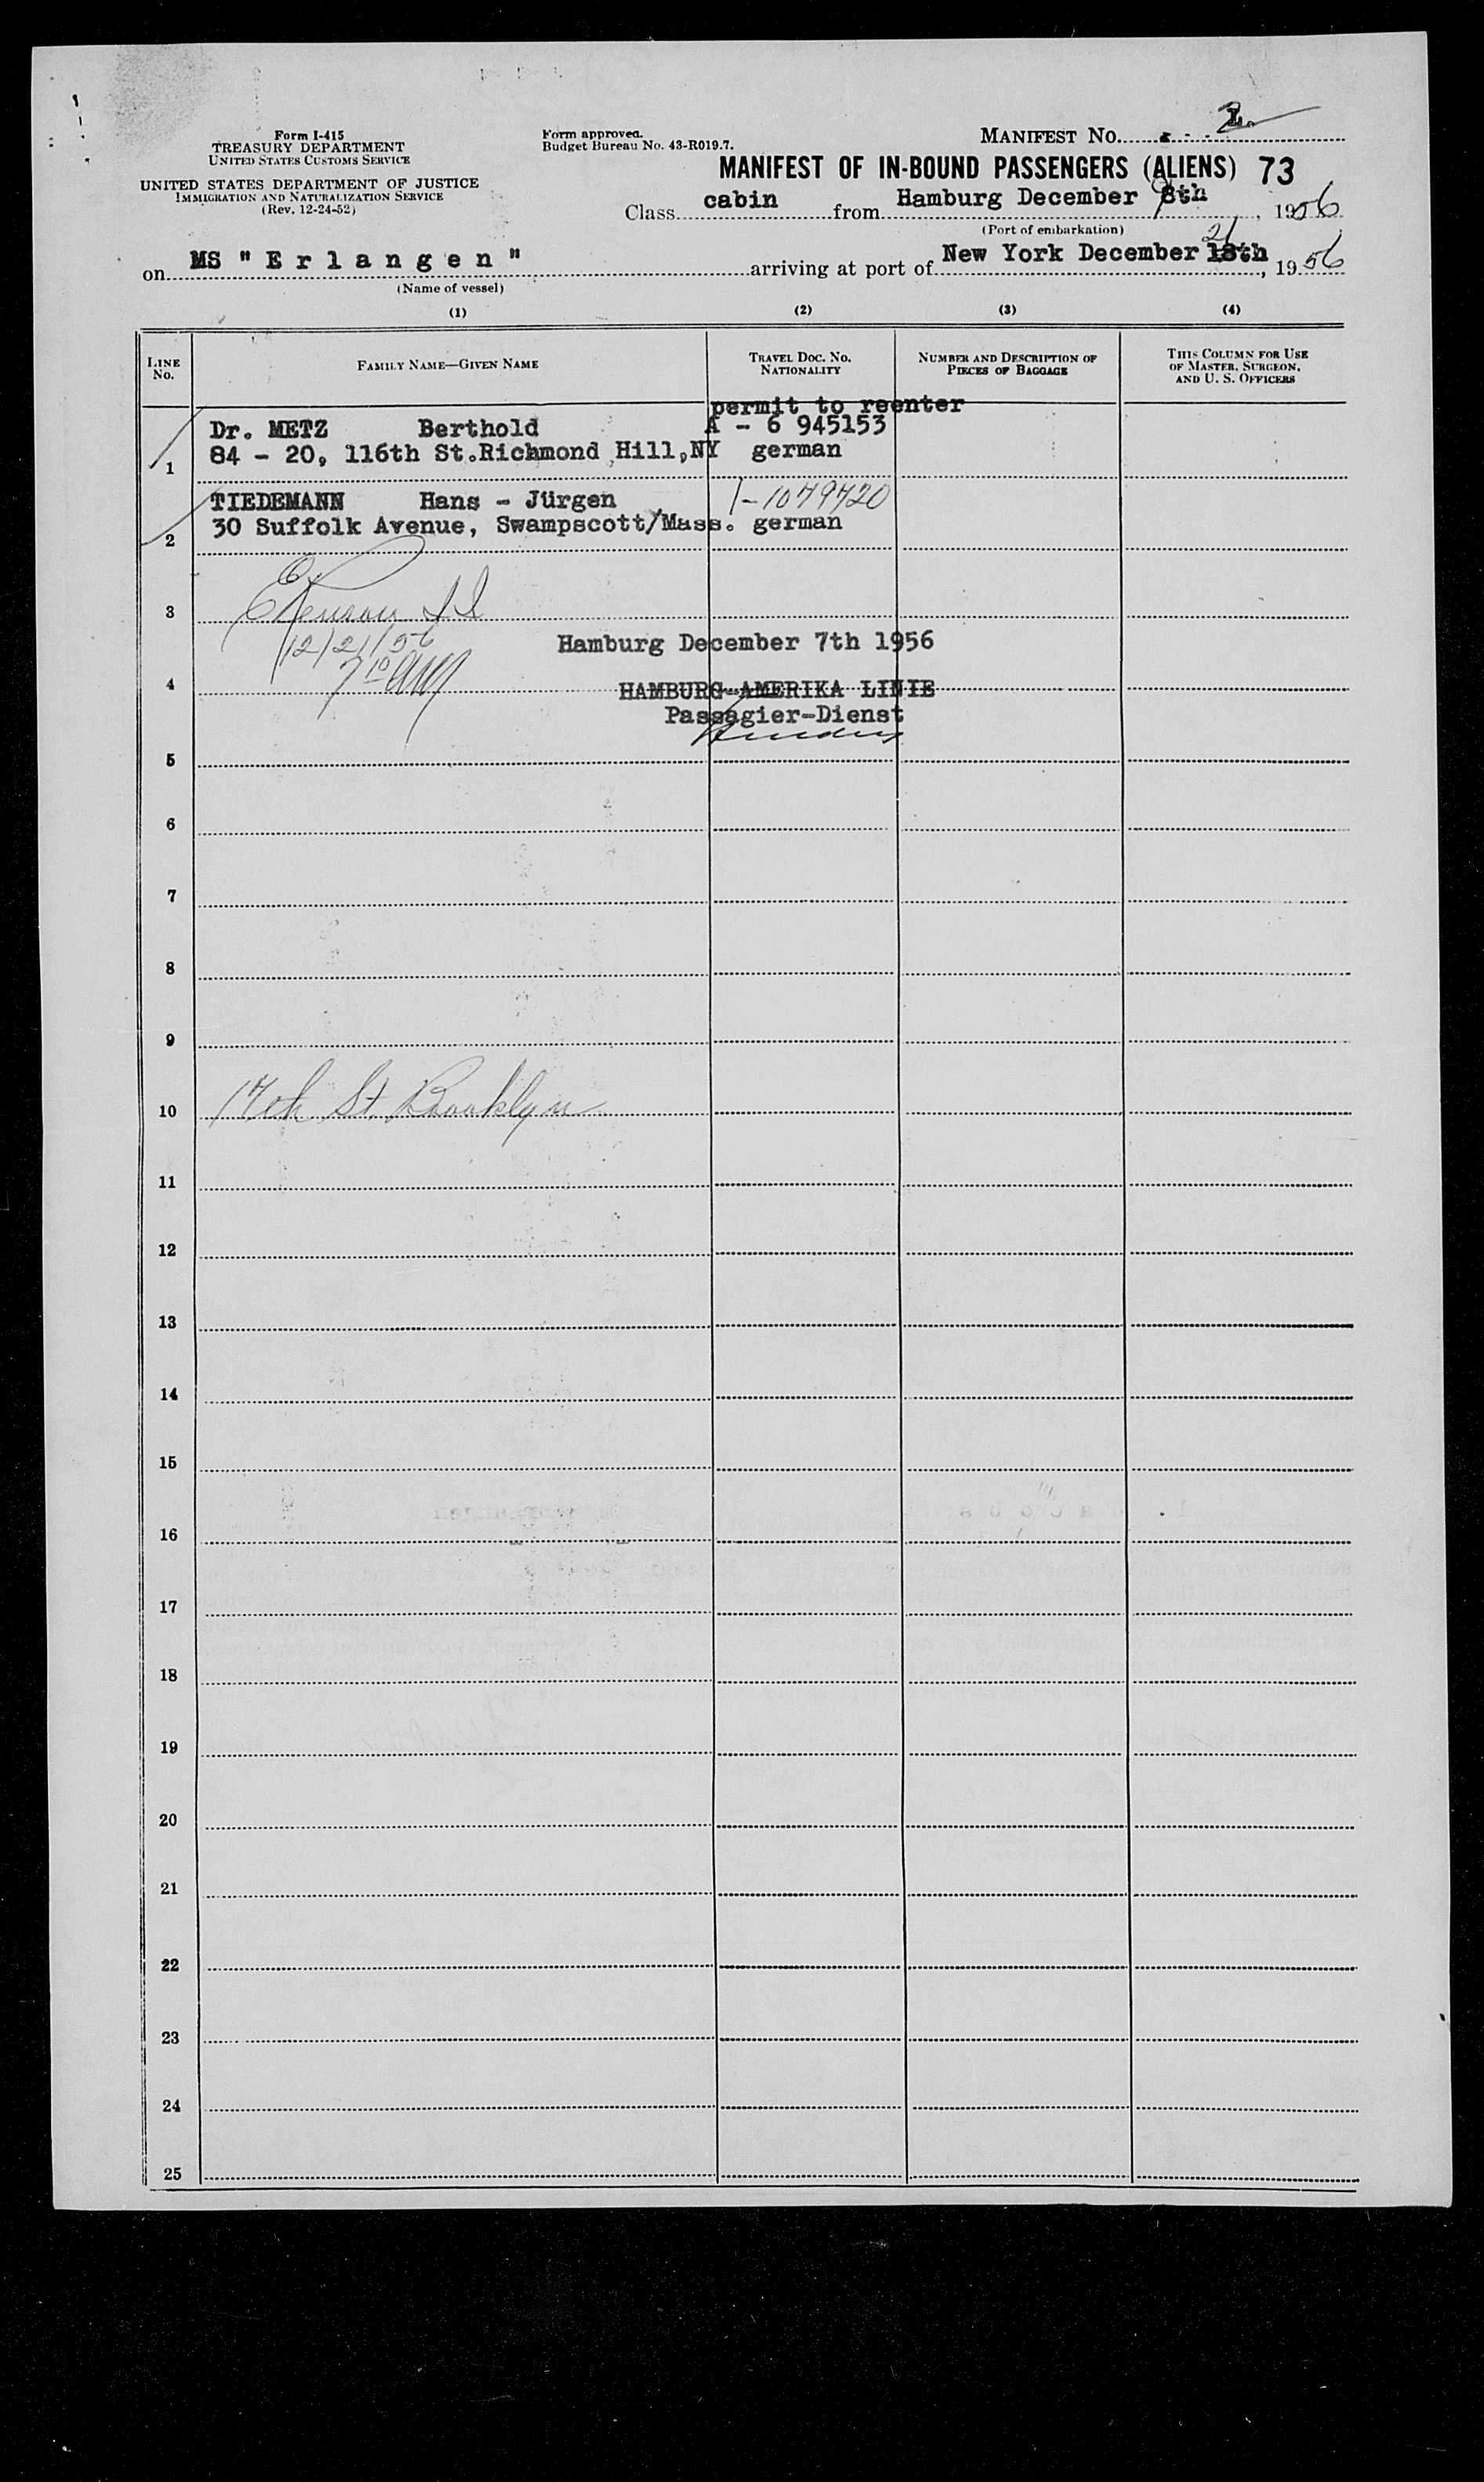 Form I-415
TREASURY DEPARTMENT
UNITED STATES CUSTOMS SERVICE
UNITED STATES DEPARTMENT OF JUSTICE
IMMIGRATION AND NATURALIZATION SERVICE
(Rev. 12-24-52)
Form approved.
Budget Bureau No. 43-R019.7.
MANIFEST NO. 2
MANIFEST OF IN-BOUND PASSENGERS (ALIENS) 73
Class cabin from Hamburg December 8th, 1956
(Port of embarkation)
21
on MS "Erlangen" arriving at port of New York December 18th, 1956
(Name of vessel)
(1) (2) (3) (4)
LINE NO.
FAMILY NAME—GIVEN NAME
TRAVEL DOC. NO. NATIONALITY
NUMBER AND DESCRIPTION OF PIECES OF BAGGAGE
THIS COLUMN FOR USE OF MASTER, SURGEON, AND U. S. OFFICERS
permit to reenter
Dr. METZ Berthold A - 6 945153
1 84 - 20, 116th St.Richmond Hill,NY german
TIEDEMANN Hans - Jürgen 1-1079720
2 30 Suffolk Avenue, Swampscott/Mass. german
3
12/21/56
Hamburg December 7th 1956
4 HAMBURG-AMERIKA LINIE
Passagier-Dienst
5
6
7
8
9
10 17th St Brooklyn
11
12
13
14
15
16
17
18
19
20
21
22
23
24
25